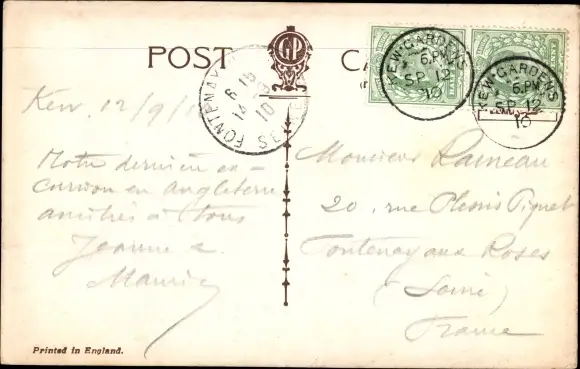 POST CA
GP
KEW·GARDENS
6.PM
SP 12
10
KEW·GARDENS
6.PM
SP 12
10
FONTENAY
6 15
14
10
Kew. 12/9/
Notre dernière ex-
cursion en Angleterre
amitiés à tous
Jeanne &
Maurice
Monsieur Rameau
20, rue Plessis Piquet
Fontenay aux Roses
(Seine)
France
Printed in England.